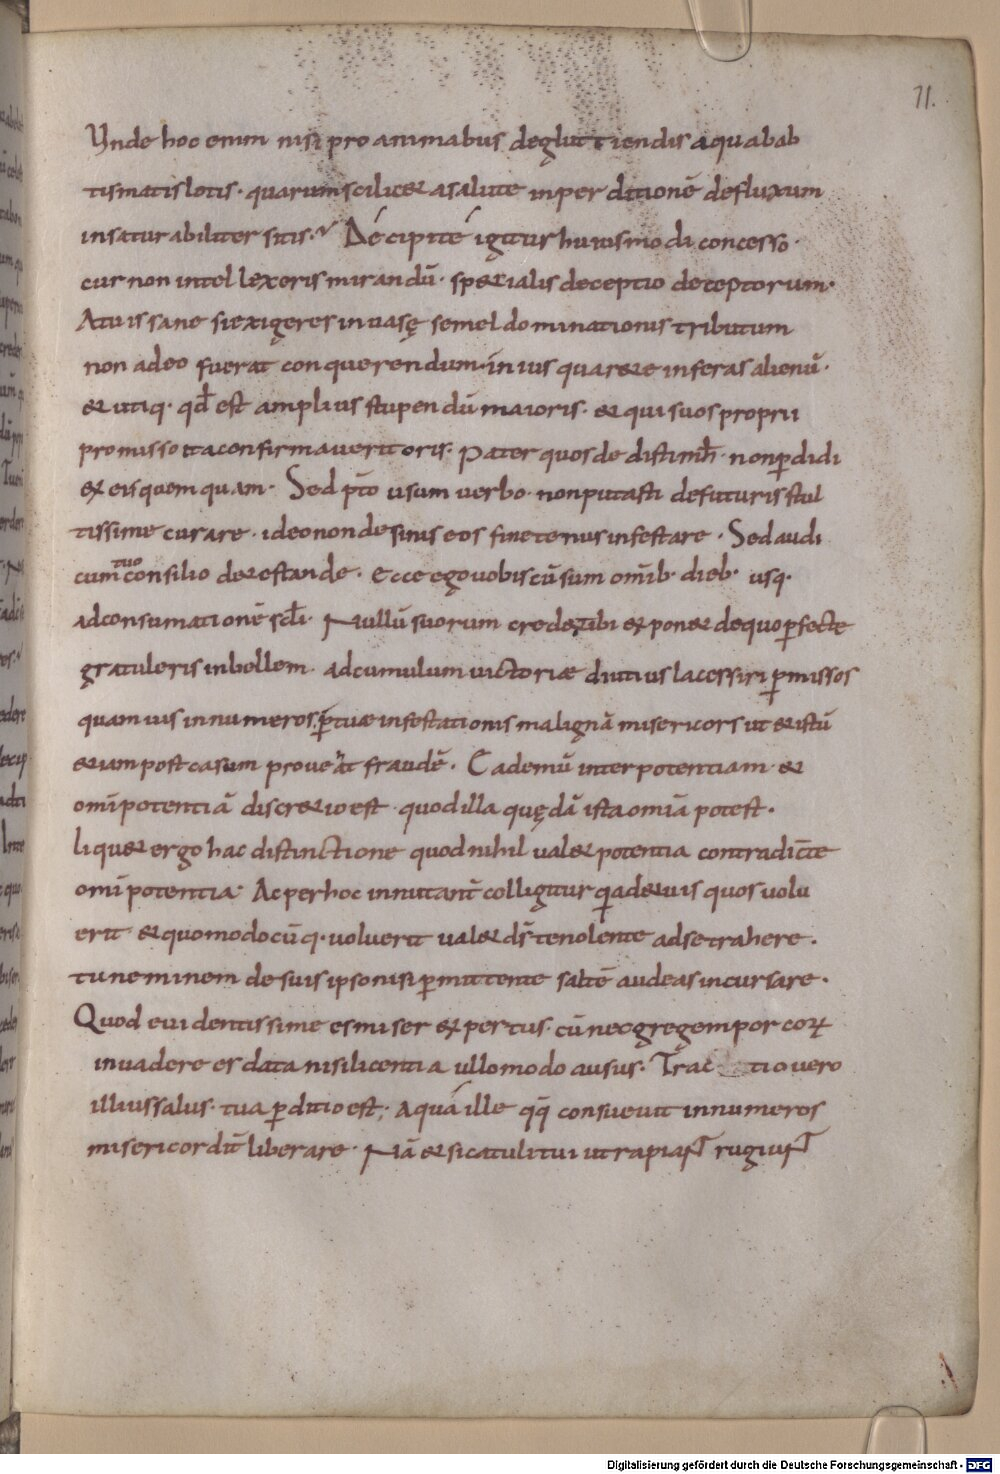 71.
Unde hoc enim nisi pro animabus degluttiendis aqua bab
tismatis lotis· quarum scilicet a salute in perditionē defluxum
insaturabiliter sitis· Décipit té igitur huiusmodi concesso·
cur non intellexeris mirandū· specialis deceptio deceptorum·
At uis sane si exigeres inuasę semel dominationis tributum
non adeo fuerat conquerendum· in ius quare te inferas alienū·
& utiq· qđ est amplius stupendū maioris· & qui suos proprii
promisso ita confirmauerit oris· Pater quos dedisti mℏ· non ꝑdidi
ex eis quemquam· Sed p̄to uisum uerbo· non putasti de futuris stul
tissime curare· ideo non desinis eos finetenus infestare· Sed audi
cum tuo consilio detestande· Ecce ego uobiscū sum om̄ib· dieb· usq·
ad consumationē scłi· Nullū suorum credet tibi exponet de quo ꝑfecte
gratuleris in bellem· ad cumulum uictoriæ diutius lacessiri ꝑmissos
quamuis innumeros ꝑ tuæ infestationis malignā misericors ut & istū
etiam post casum proueat fraudē· Ea demū inter potentiam· &
om̄ipotentiā discretio est· quod illa quędā ista om̄ia potest·
liquet ergo hac distinctione quod nihil ualet potentia contradicte
om̄ipotentia· Ac per hoc innitant̄ colligitur qađ & uis quos uolu
erit· & quomodocūq· uoluerit ualet dś te nolente ad se trahere·
tu neminem de suis ipso nisi ꝑmittente saltē audeas incursare·
Quod euidentissime es miser expertus· cū nec gregem porcoꝝ
inuadere es data nisi licentia ullo modo ausus· Trac tio uero
illius salus· tua ꝑditio est; A qua ille qq̄ consueuit innumeros
misericordit̄ liberare· Nā & si catuli tui ut rapiant rugiunt
Digitalisierung gefördert durch die Deutsche Forschungsgemeinschaft - DFG